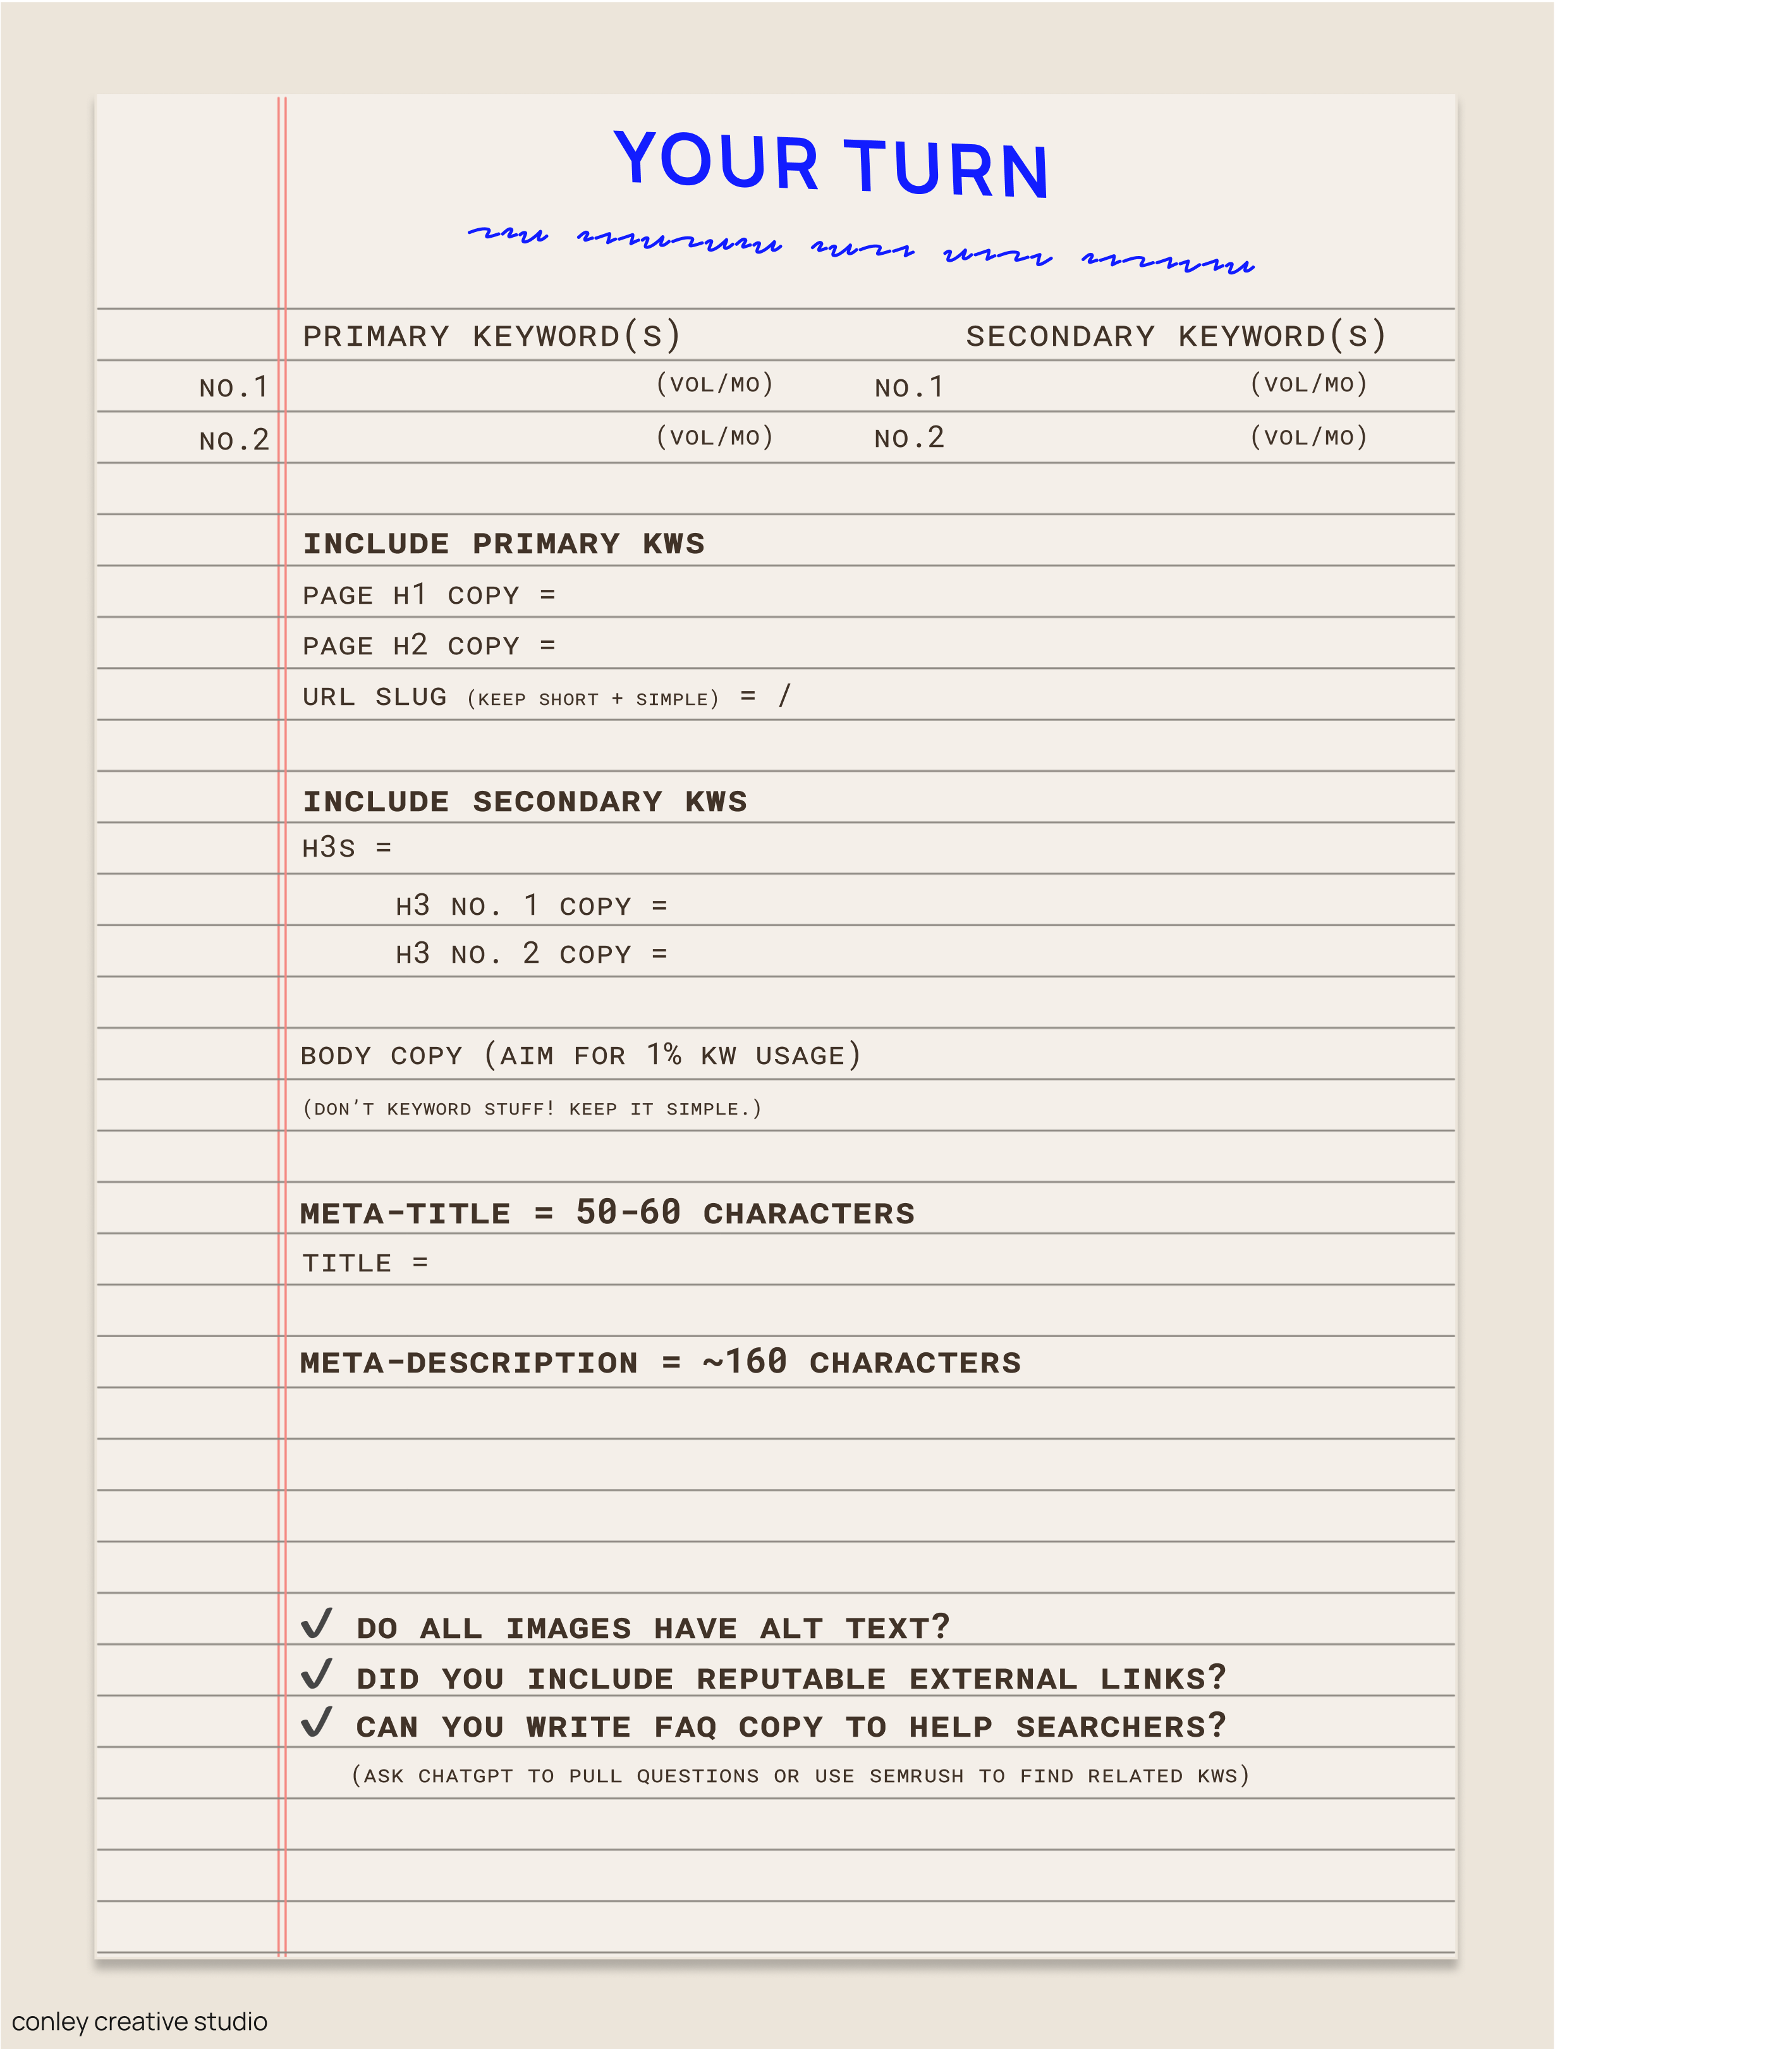 YOUR TURN
PRIMARY KEYWORD(S) SECONDARY KEYWORD(S)
NO.1 (VOL/MO) NO.1 (VOL/MO)
NO.2 (VOL/MO) NO.2 (VOL/MO)
INCLUDE PRIMARY KWS
PAGE H1 COPY =
PAGE H2 COPY =
URL SLUG (KEEP SHORT + SIMPLE) = /
INCLUDE SECONDARY KWS
H3S =
H3 NO. 1 COPY =
H3 NO. 2 COPY =
BODY COPY (AIM FOR 1% KW USAGE)
(DON'T KEYWORD STUFF! KEEP IT SIMPLE.)
META-TITLE = 50-60 CHARACTERS
TITLE =
META-DESCRIPTION = ~160 CHARACTERS
✓ DO ALL IMAGES HAVE ALT TEXT?
✓ DID YOU INCLUDE REPUTABLE EXTERNAL LINKS?
✓ CAN YOU WRITE FAQ COPY TO HELP SEARCHERS?
(ASK CHATGPT TO PULL QUESTIONS OR USE SEMRUSH TO FIND RELATED KWS)
conley creative studio